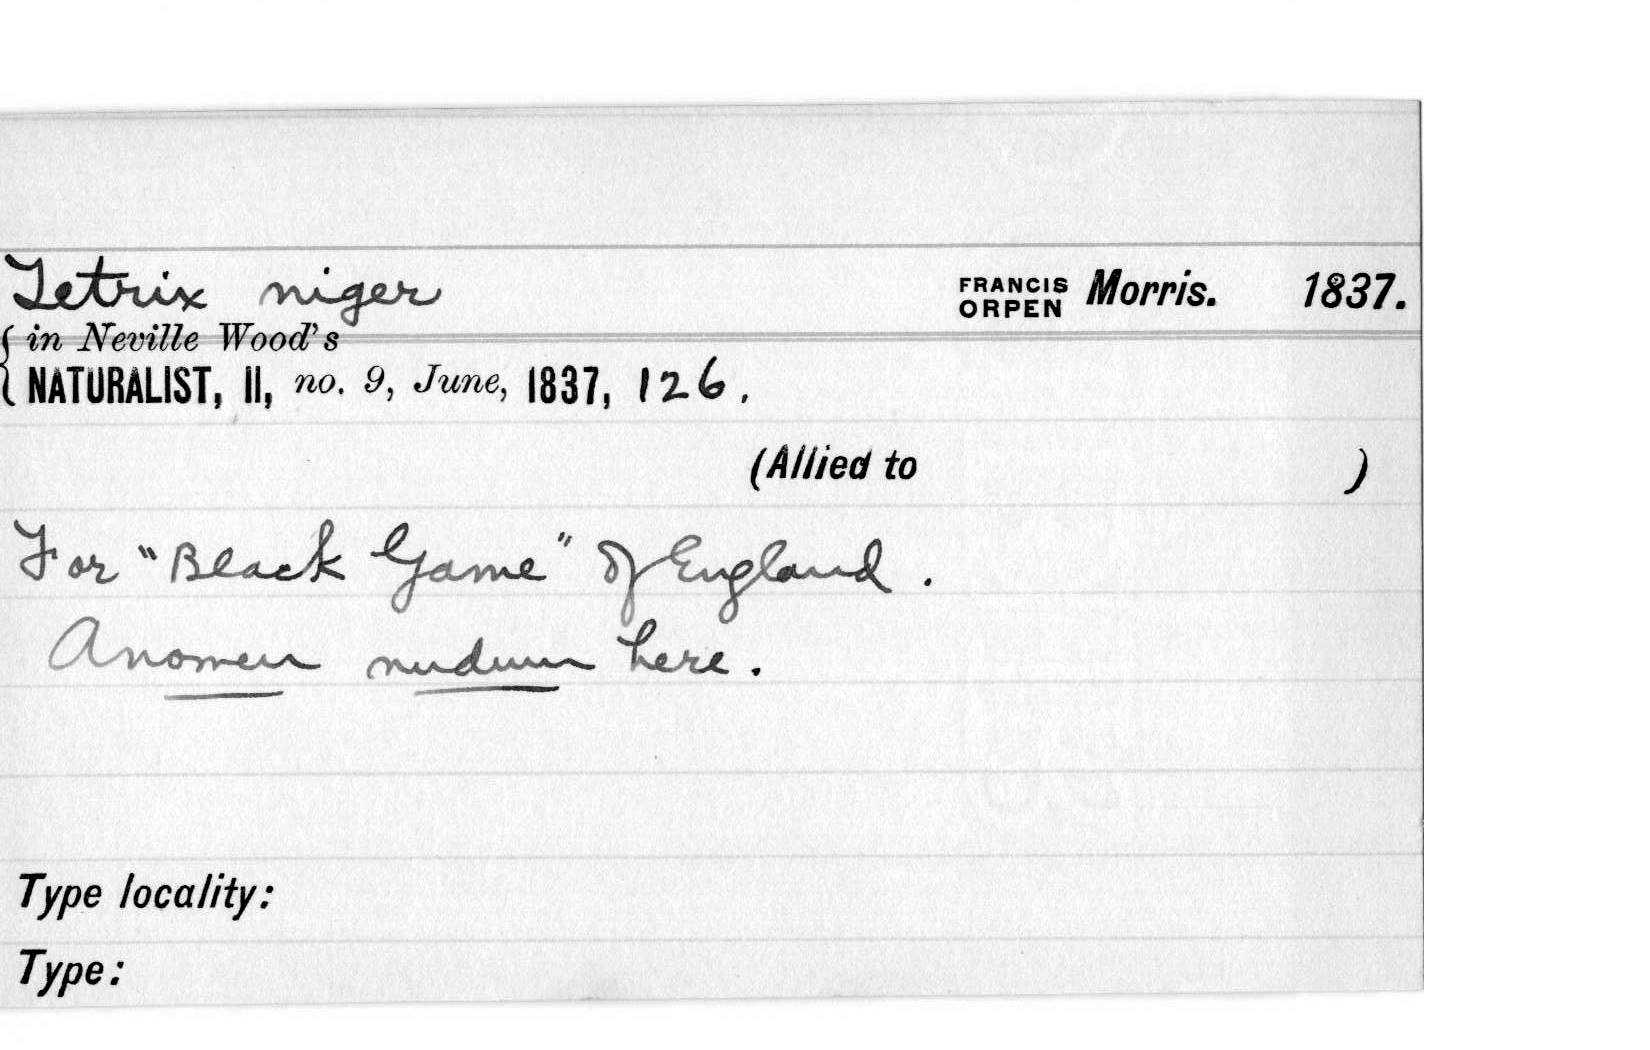 Tetrix niger FRANCIS ORPEN Morris. 1837.
{ in Neville Wood's
NATURALIST, II, no. 9, June, 1837, 126.
(Allied to )
For "Black Game" of England.
A nomen nudum here.
Type locality:
Type: